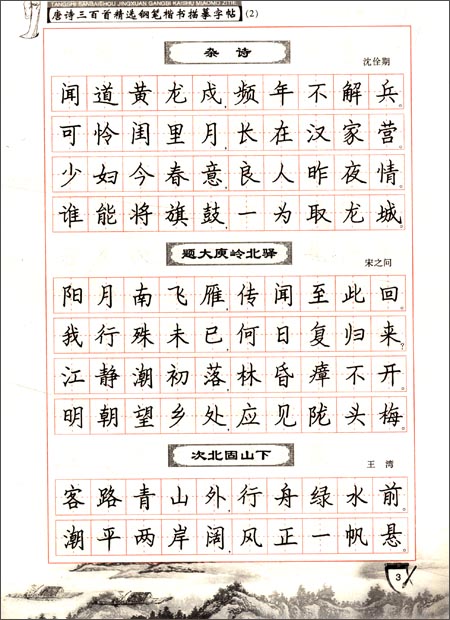 TANGSHI SANBAISHOU JINGXUAN GANGBI KAISHU MIAOMO ZITIE
唐诗三百首精选钢笔楷书描摹字帖(2)
杂 诗
沈佺期
闻道黄龙戍,频年不解兵。
可怜闺里月,长在汉家营。
少妇今春意,良人昨夜情。
谁能将旗鼓,一为取龙城。
题大庾岭北驿
宋之问
阳月南飞雁,传闻至此回。
我行殊未已,何日复归来?
江静潮初落,林昏瘴不开。
明朝望乡处,应见陇头梅。
次北固山下
王 湾
客路青山外,行舟绿水前。
潮平两岸阔,风正一帆悬。
3